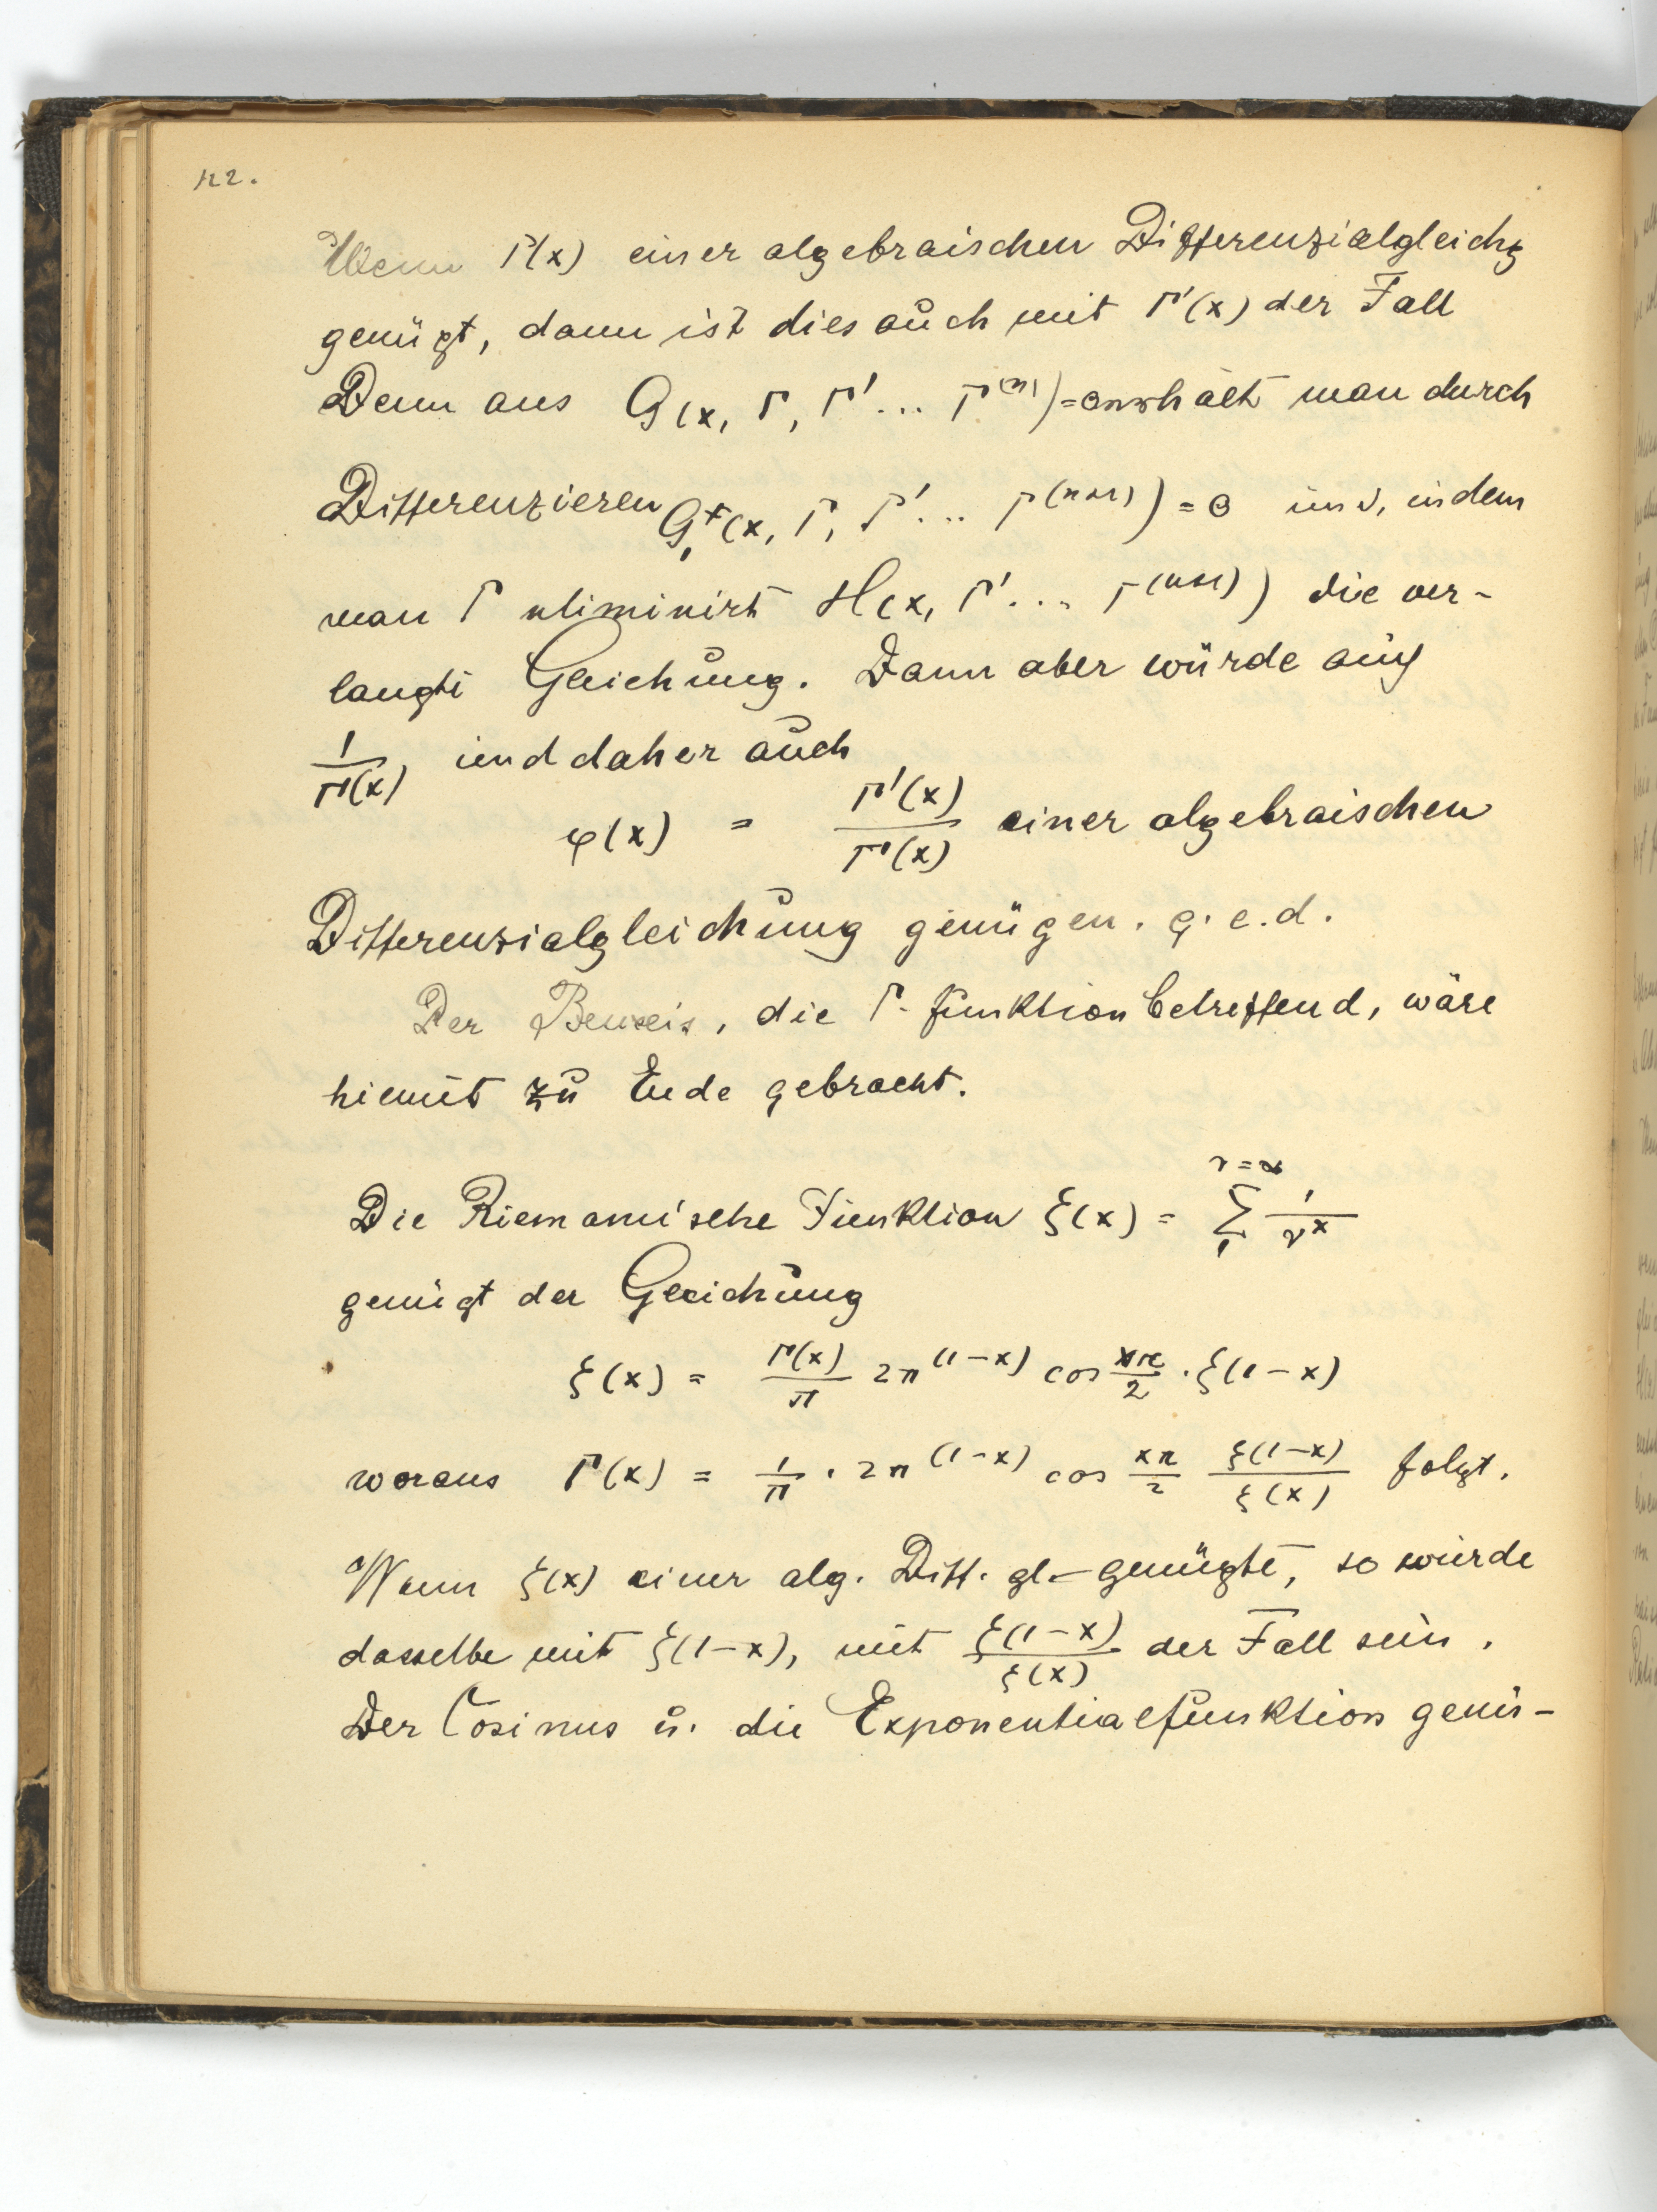 122.
Wenn Γ(x) einer algebraischen Differenzialgleichg
genügt, dann ist dies auch mit Γ'(x) der Fall
Denn aus G(x, Γ, Γ' ... Γ^(n)) = 0 erhält man durch
Differenzieren G₁*(x, Γ, Γ' ... Γ^(n+1)) = 0 und, indem
man Γ eliminirt H(x, Γ' ... Γ^(n+1)) die ver-
langte Gleichung. Dann aber würde auch
1/Γ(x) und daher auch
φ(x) = Γ'(x)/Γ(x) einer algebraischen
Differenzialgleichung genügen. q. e. d.
Der Beweis, die Γ-funktion betreffend, wäre
hiemit zu Ende gebracht.
Die Riemann'sche Funktion ξ(x) = Σ₁^(ν=∞) 1/ν^x
genügt der Gleichung
ξ(x) = Γ(x)/π 2π^(1-x) cos xπ/2 · ξ(1-x)
woraus Γ(x) = 1/π · 2π^(1-x) cos xπ/2 ξ(1-x)/ξ(x) folgt.
Wenn ξ(x) einer alg. Diff. gl- genügte, so würde
dasselbe mit ξ(1-x), mit ξ(1-x)/ξ(x) der Fall sein.
Der Cosinus u. die Exponentialfunktion genü-